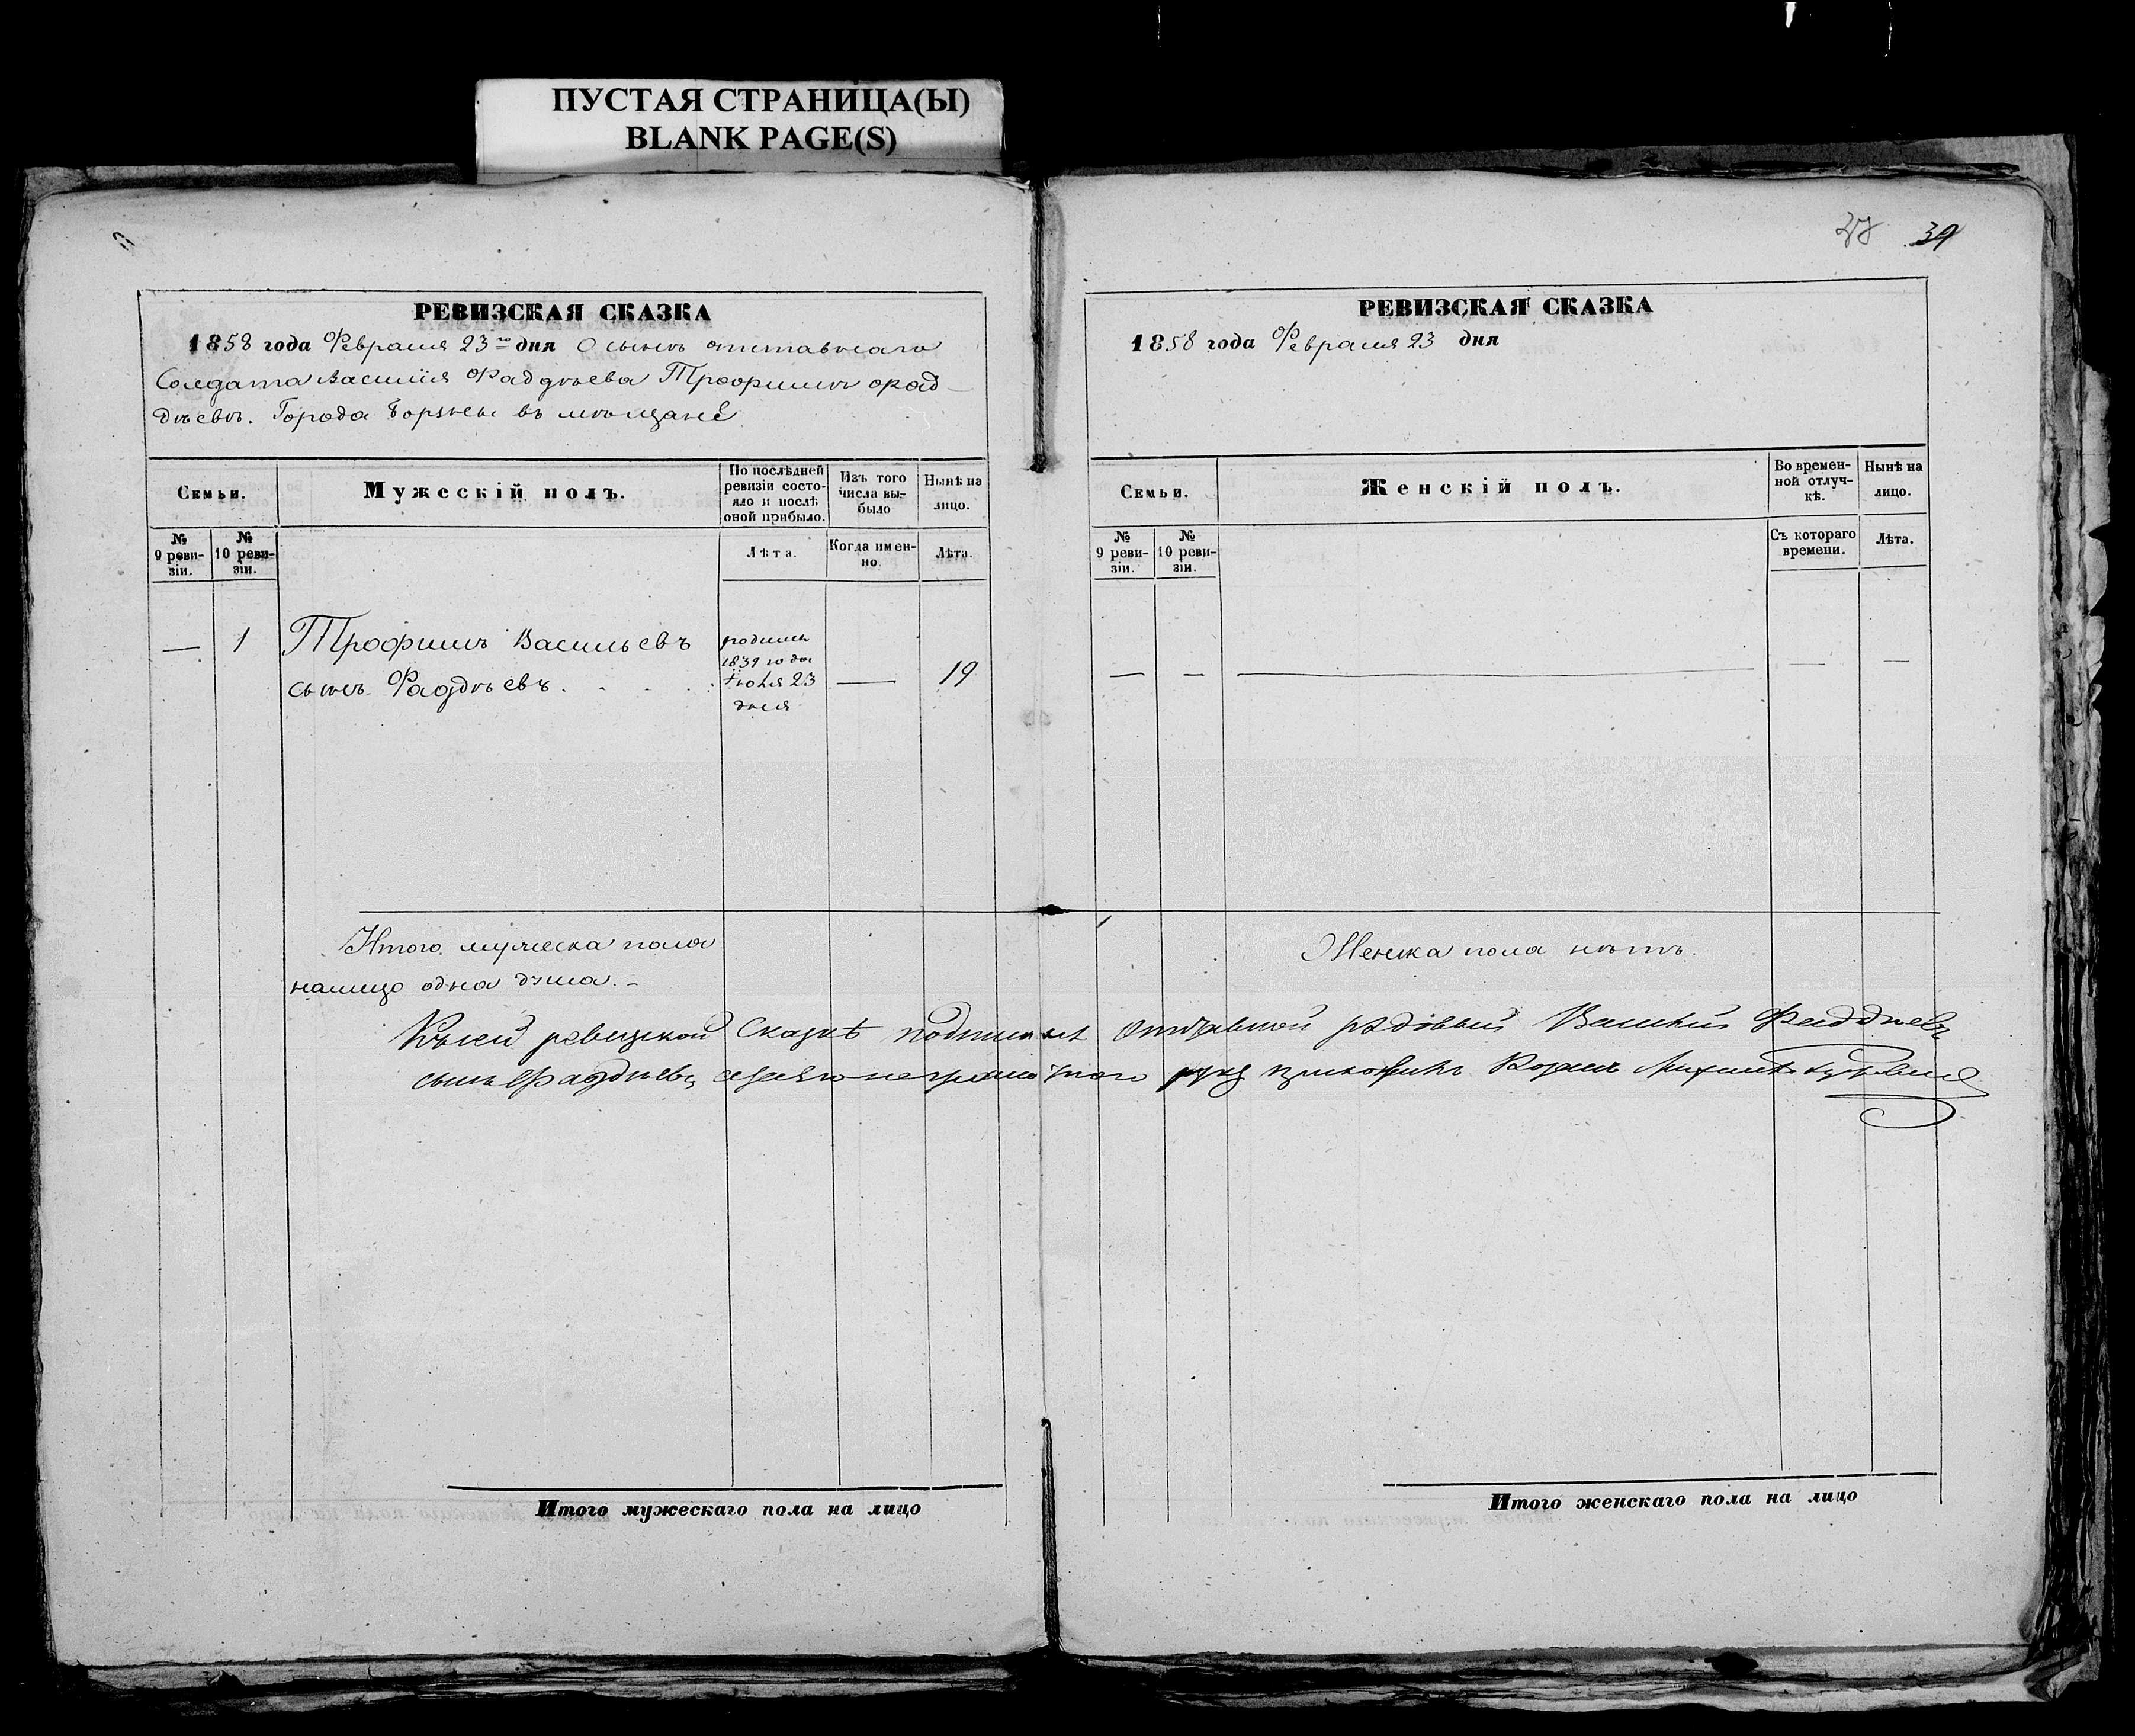 ПУСТАЯ СТРАНИЦА(Ы)
BLANK PAGE(S)
РЕВИЗСКАЯ СКАЗКА
1858 года Февраля 23го дня О сынѣ отставнаго
Солдата Василія Фаддѣева Трофимѣ Фад-
дѣевѣ. Города Борзны въ мѣщане
Семьи.
Мужескій полъ.
По послѣдней ревизіи состо-
яло и послѣ оной прибыло.
Изъ того числа вы-
было
Нынѣ на лицо.
№ 9 реви-
зіи.
№ 10 реви-
зіи.
Лѣта.
Когда имен-
но
Лѣта.
— 1 Трофимъ Васильевъ
сынъ Фаддѣевъ.
родился
1839 года
Іюля 23
дня
— 19
Итого мужеска пола
налицо одна душа. –
Итого мужескаго пола на лицо
39
РЕВИЗСКАЯ СКАЗКА
1858 года Февраля 23 дня
Семьи.
Женскій полъ.
Во времен-
ной отлуч-
кѣ.
Нынѣ на
лицо.
№ 9 реви-
зіи.
№ 10 реви-
зіи.
Съ котораго
времени.
Лѣта.
— — — — —
Женска пола нѣтъ.
Къ сей ревизкой Сказкѣ отставной рядовый Василий Фаддѣевъ
сынъ Фаддѣевъ неграмотного руку приложилъ Козакъ
Итого женскаго пола на лицо